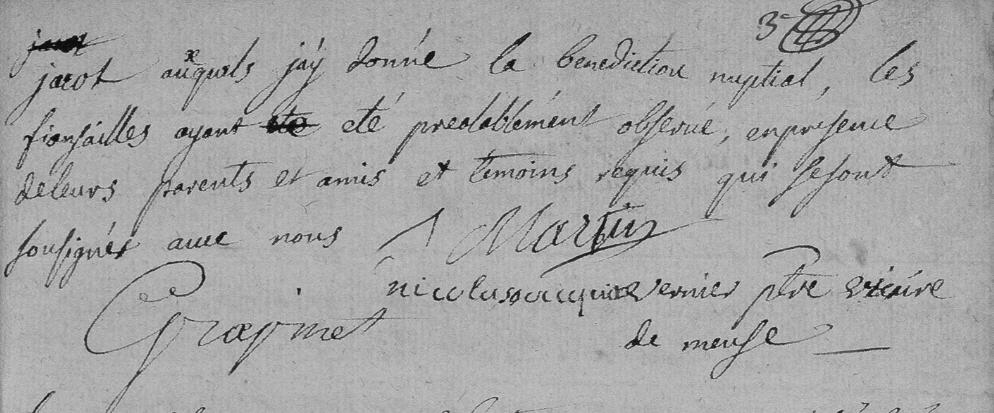 3e
jacot auxquels j'ay donné la benediction nuptial, les
fiansailles ayant eté prealablément observé, en presence
de leurs parents et amis et temoins requis qui se sont
sousignés avec nous J Martin
nicolas vernier ptre vicaire
de meuse